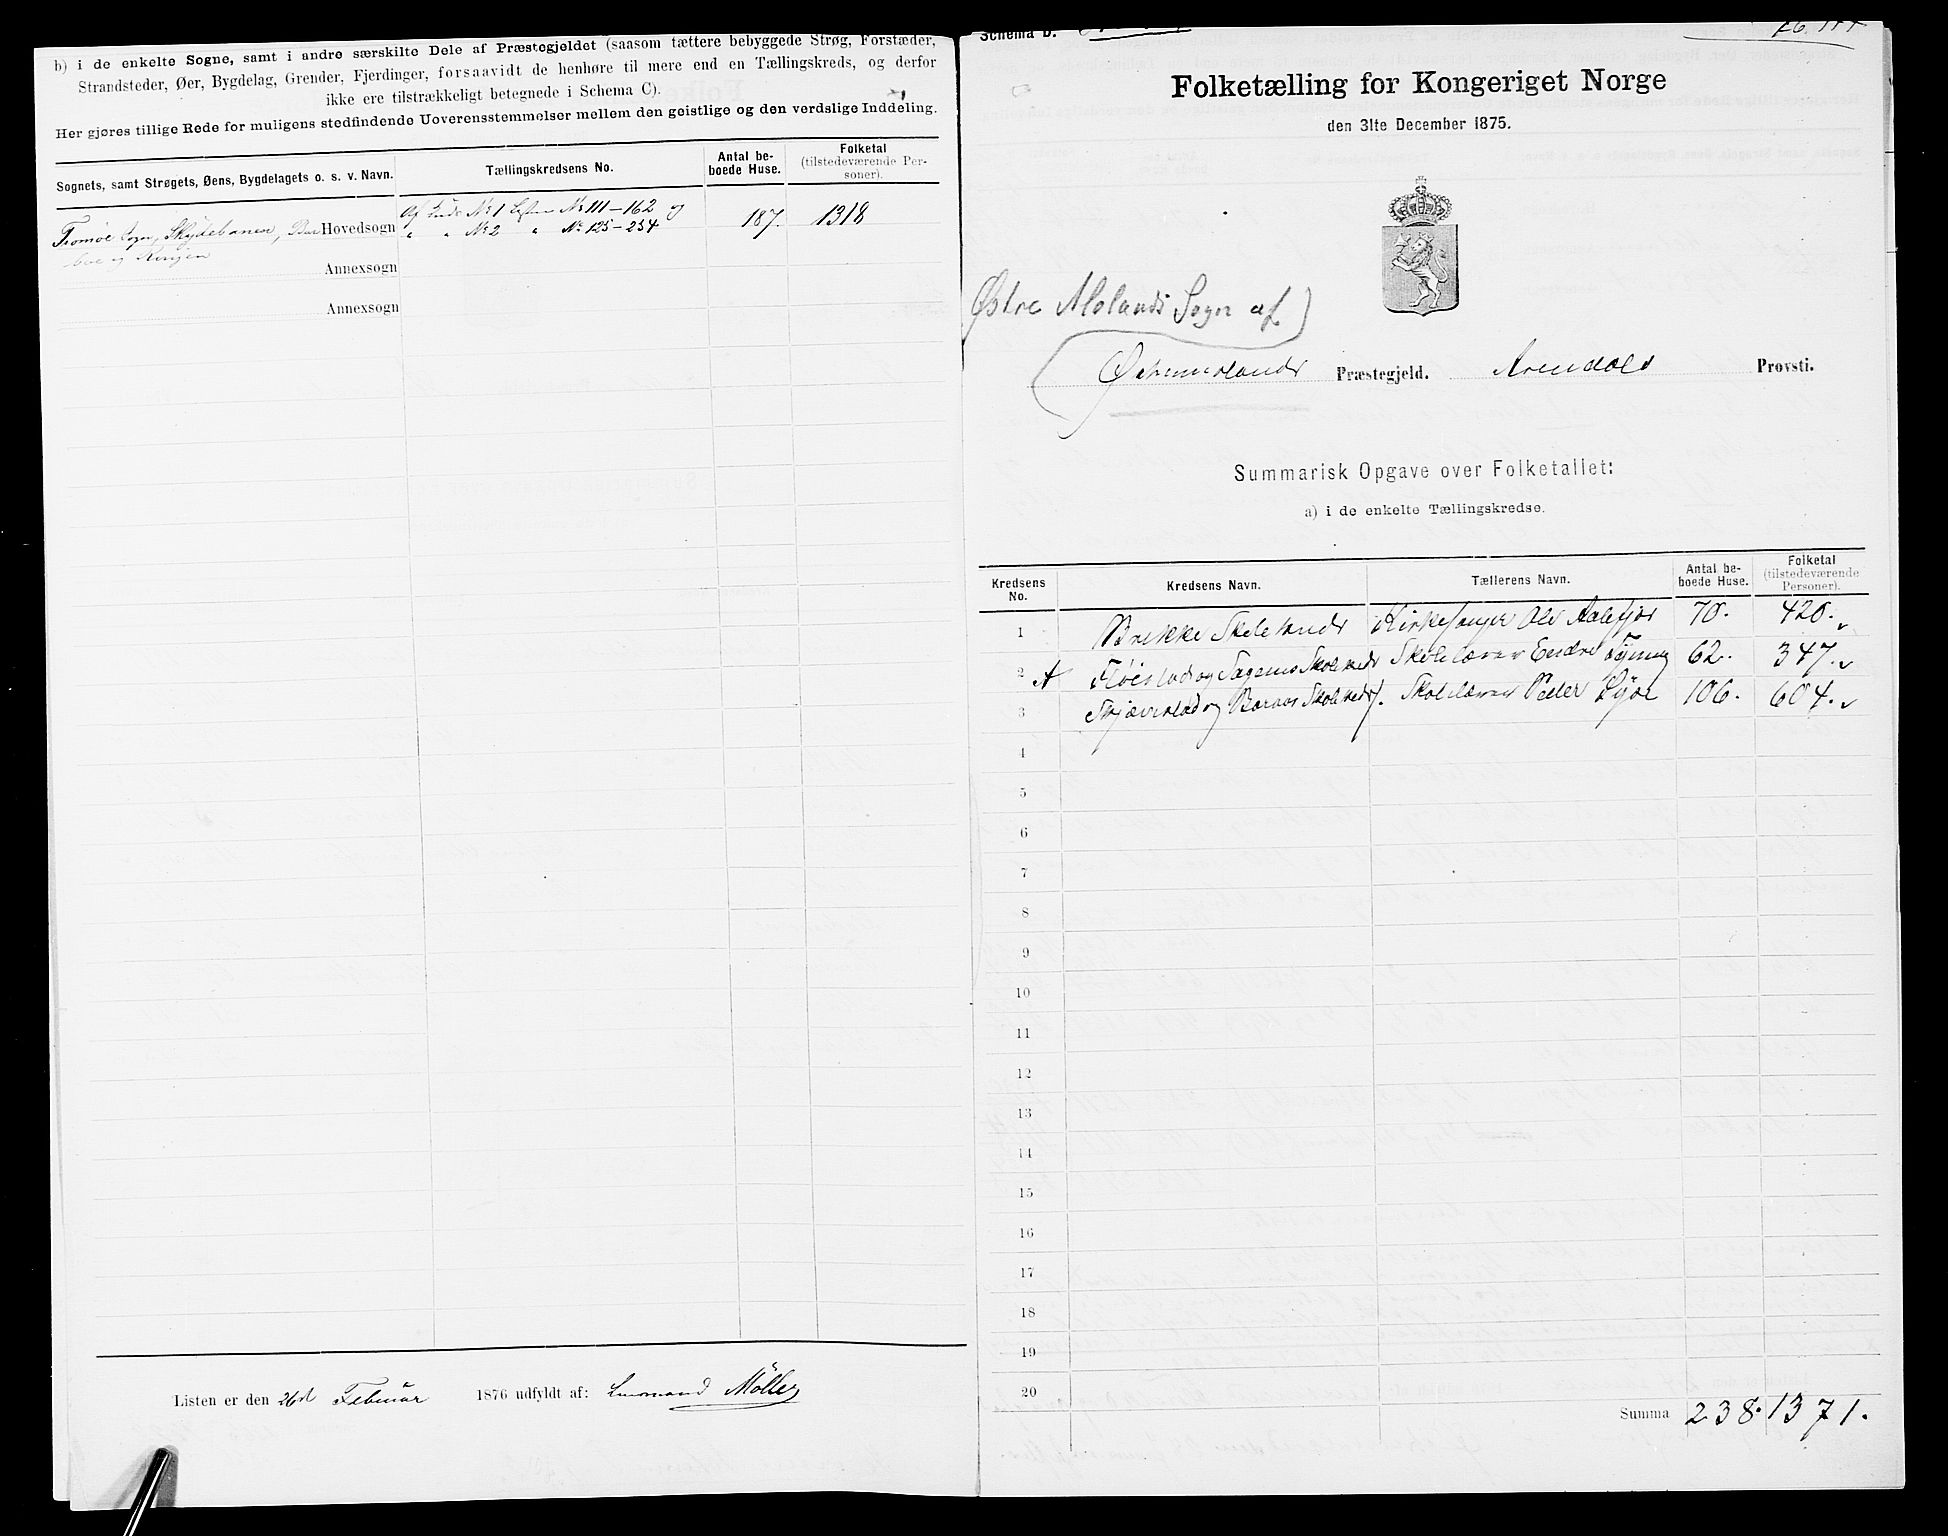 b) i de enkelte Sogne, samt i andre særskilte Dele af Præstegjeldet (saasom tættere bebyggede Strøg, Forstæder,
Strandsteder, Øer, Bygdelag, Grender, Fjerdinger, forsaavidt de henhøre til mere end en Tællingskreds, og derfor
ikke ere tilstrækkeligt betegnede i Schema C).
Her gjøres tillige Rede for muligens stedfindende Uoverensstemmelser mellem den geistlige og den verdslige Inddeling.
Sognets, samt Strøgets, Øens, Bygdelagets o. s. v. Navn.
Tællingskredsens No.
Antal be-
boede Huse.
Folketal
(tilstedeværende Per-
soner).
Tromøe Sogn, Skydebanen, Hovedsogn Af No 1 No 111–162 og 187. 1318
" " No 2 " No 125–254
og
Annexsogn
Annexsogn
Listen er den 26d Februar 1876 udfyldt af: Lensmand Möller
Schema B.
Folketælling for Kongeriget Norge
den 31te December 1875.
Østre Molands Sogn af
Østremolands Præstegjeld. Arendals Provsti.
Summarisk Opgave over Folketallet:
a) i de enkelte Tællingskredse.
Kredsens
No.
Kredsens Navn.
Tællerens Navn.
Antal be-
boede Huse.
Folketal
(tilstedeværende
Personer).
1 Brekke Kirkesanger Ole 70. 420.
2 Fløistad og Sagenes Skolekreds Skolelærer Endre 62. 347.
3 og Skolekreds. Skolelærer Peder 106. 604.
4
5
6
7
8
9
10
11
12
13
14
15
16
17
18
19
20
Summa 238. 1371.